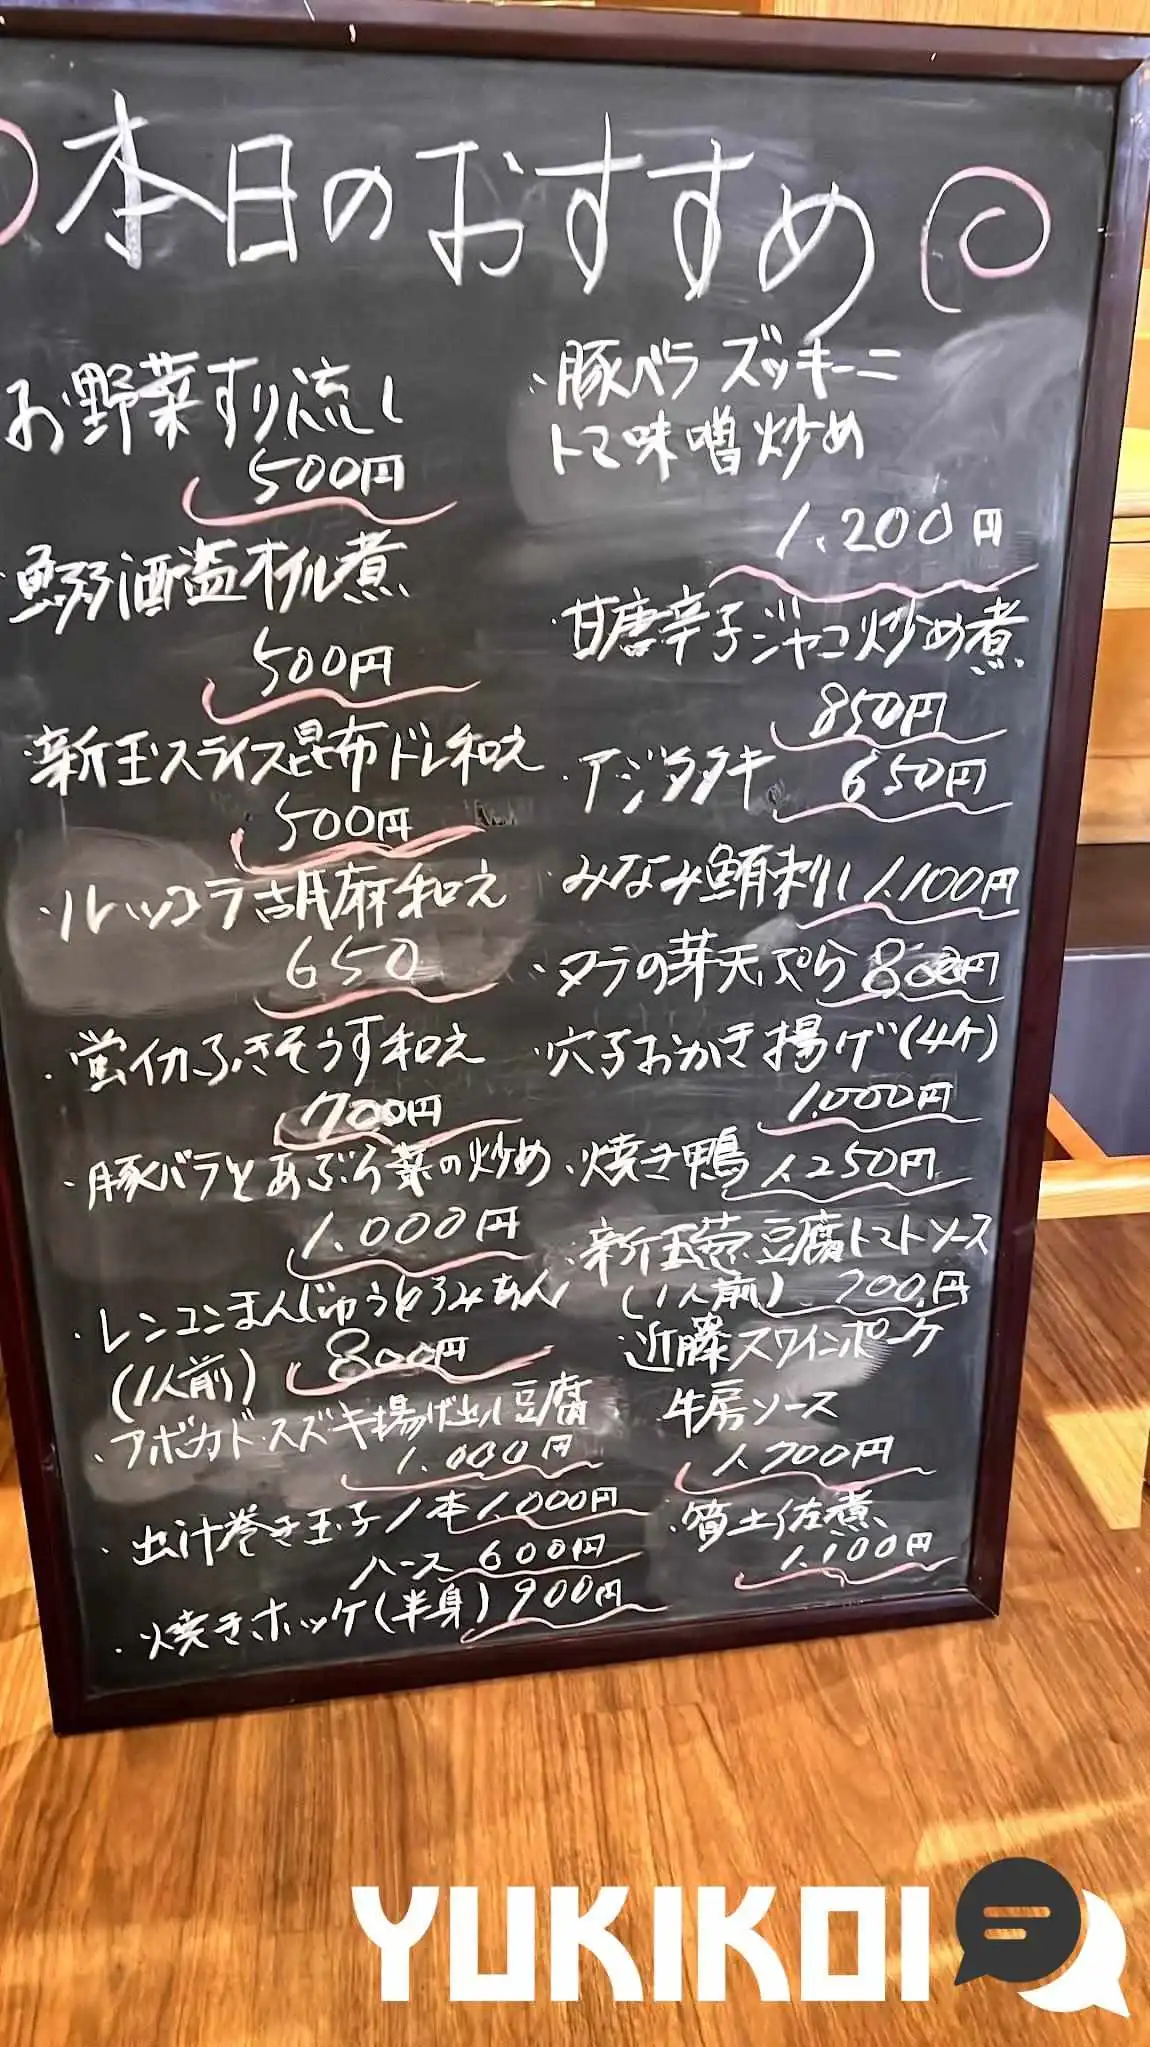 本日のおすすめ
お野菜すり流し
500円
鰯酒盗オイル煮
500円
・新玉スライス昆布ドレ和え
500円
・ルッコラ胡麻和え
650
・蛍イカふきそうす和え
700円
・豚バラとあぶら菜の炒め
1.000円
・レンコンまんじゅうとろみあん
(1人前) 800円
・アボカド・スズキ揚げ出し豆腐
1.000円
・出汁巻き玉子1本1.000円
ハース 600円
・焼きホッケ(半身)900円
・豚バラズッキーニ
トマ味噌炒め
1.200円
・甘唐辛子ジャコ炒め煮
850円
・アジタタキ 650円
・みなみ鮪刺し1.100円
・タラの芽天ぷら800円
・穴子おかき揚げ(4ケ)
1.000円
・焼き鴨 1.250円
・新玉葱豆腐トマトソース
(1人前) 700円
近藤スワインポーク
牛房ソース
1.700円
・筍土佐煮
1.100円
YUKIKOI